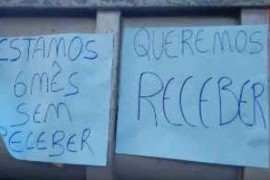 ESTAMOS
6 MÊS
SEM
RECEBER
QUEREMOS
RECEBER